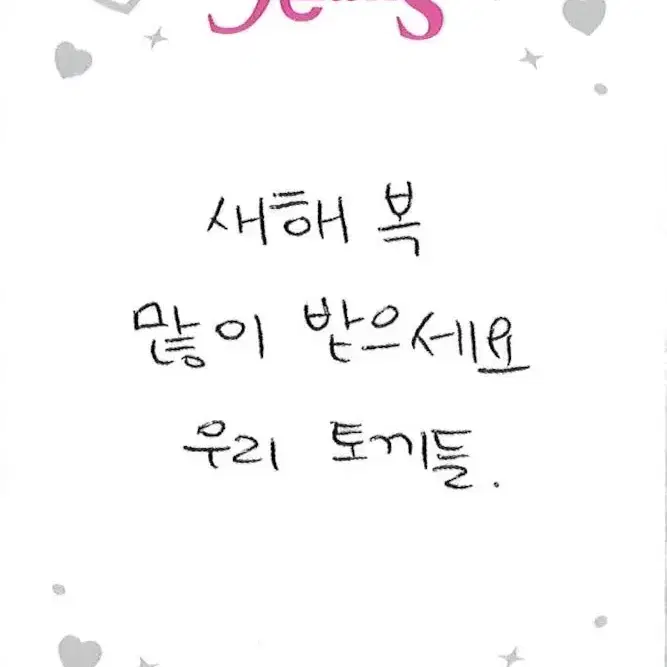 새해 복
많이 받으세요
우리 토끼들.